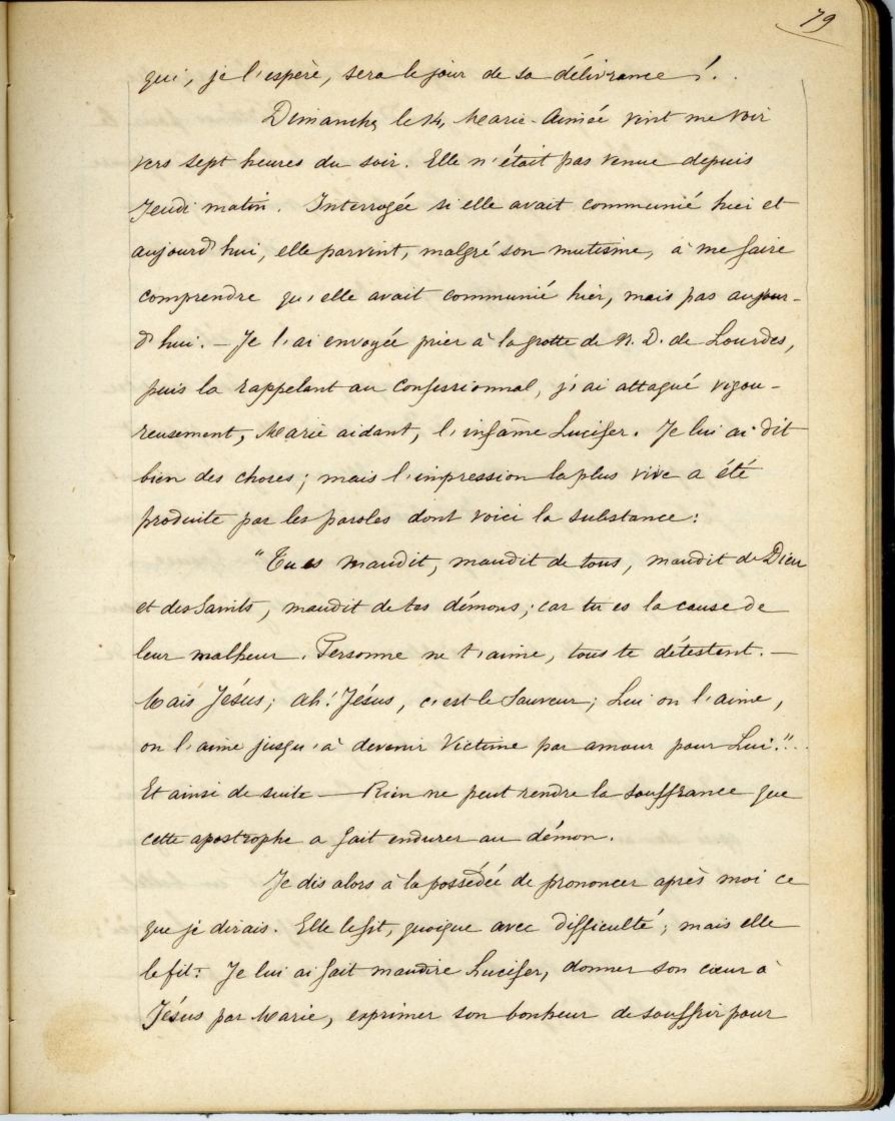 79
qui, je l'espère, sera le jour de sa délivrance !..
Dimanche, le 14, Marie-Aimée vint me voir
vers sept heures du soir. Elle n'était pas venue depuis
Jeudi matin. Interrogée si elle avait communié hier et
aujourd'hui, elle parvint, malgré son mutisme, à me faire
comprendre qu'elle avait communié hier, mais pas aujour-
d'hui. — Je l'ai envoyée prier à la grotte de N. D. de Lourdes,
puis la rappelant au confessionnal, j'ai attaqué vigou-
reusement, Marie aidant, l'infâme Lucifer. Je lui ai dit
bien des choses ; mais l'impression la plus vive a été
produite par les paroles dont voici la substance :
"Tu es maudit, maudit de tous, maudit de Dieu
et des Saints, maudit de tes démons ; car tu es la cause de
leur malheur. Personne ne t'aime, tous te détestent. —
Mais Jésus ; ah ! Jésus, c'est le Sauveur ; Lui on l'aime,
on l'aime jusqu'à devenir Victime par amour pour Lui !"..
Et ainsi de suite — Rien ne peut rendre la souffrance que
cette apostrophe a fait endurer au démon.
Je dis alors à la possédée de prononcer après moi ce
que je dirais. Elle le fit, quoique avec difficulté ; mais elle
le fit. Je lui ai fait maudire Lucifer, donner son cœur à
Jésus par Marie, exprimer son bonheur de souffrir pour